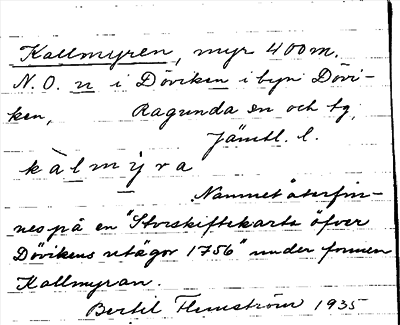 Kallmyren, myr 400 m.
N.O. n i Döviken i byn Dövi-
ken, Ragunda sn och tg,
Jämtl. l.
kàlmỳra
Namnet återfin-
nes på en "Storskifteskarta öfver
Dövikens utägor 1756" under formen
Kallmyran.
Bertil Flemström 1935